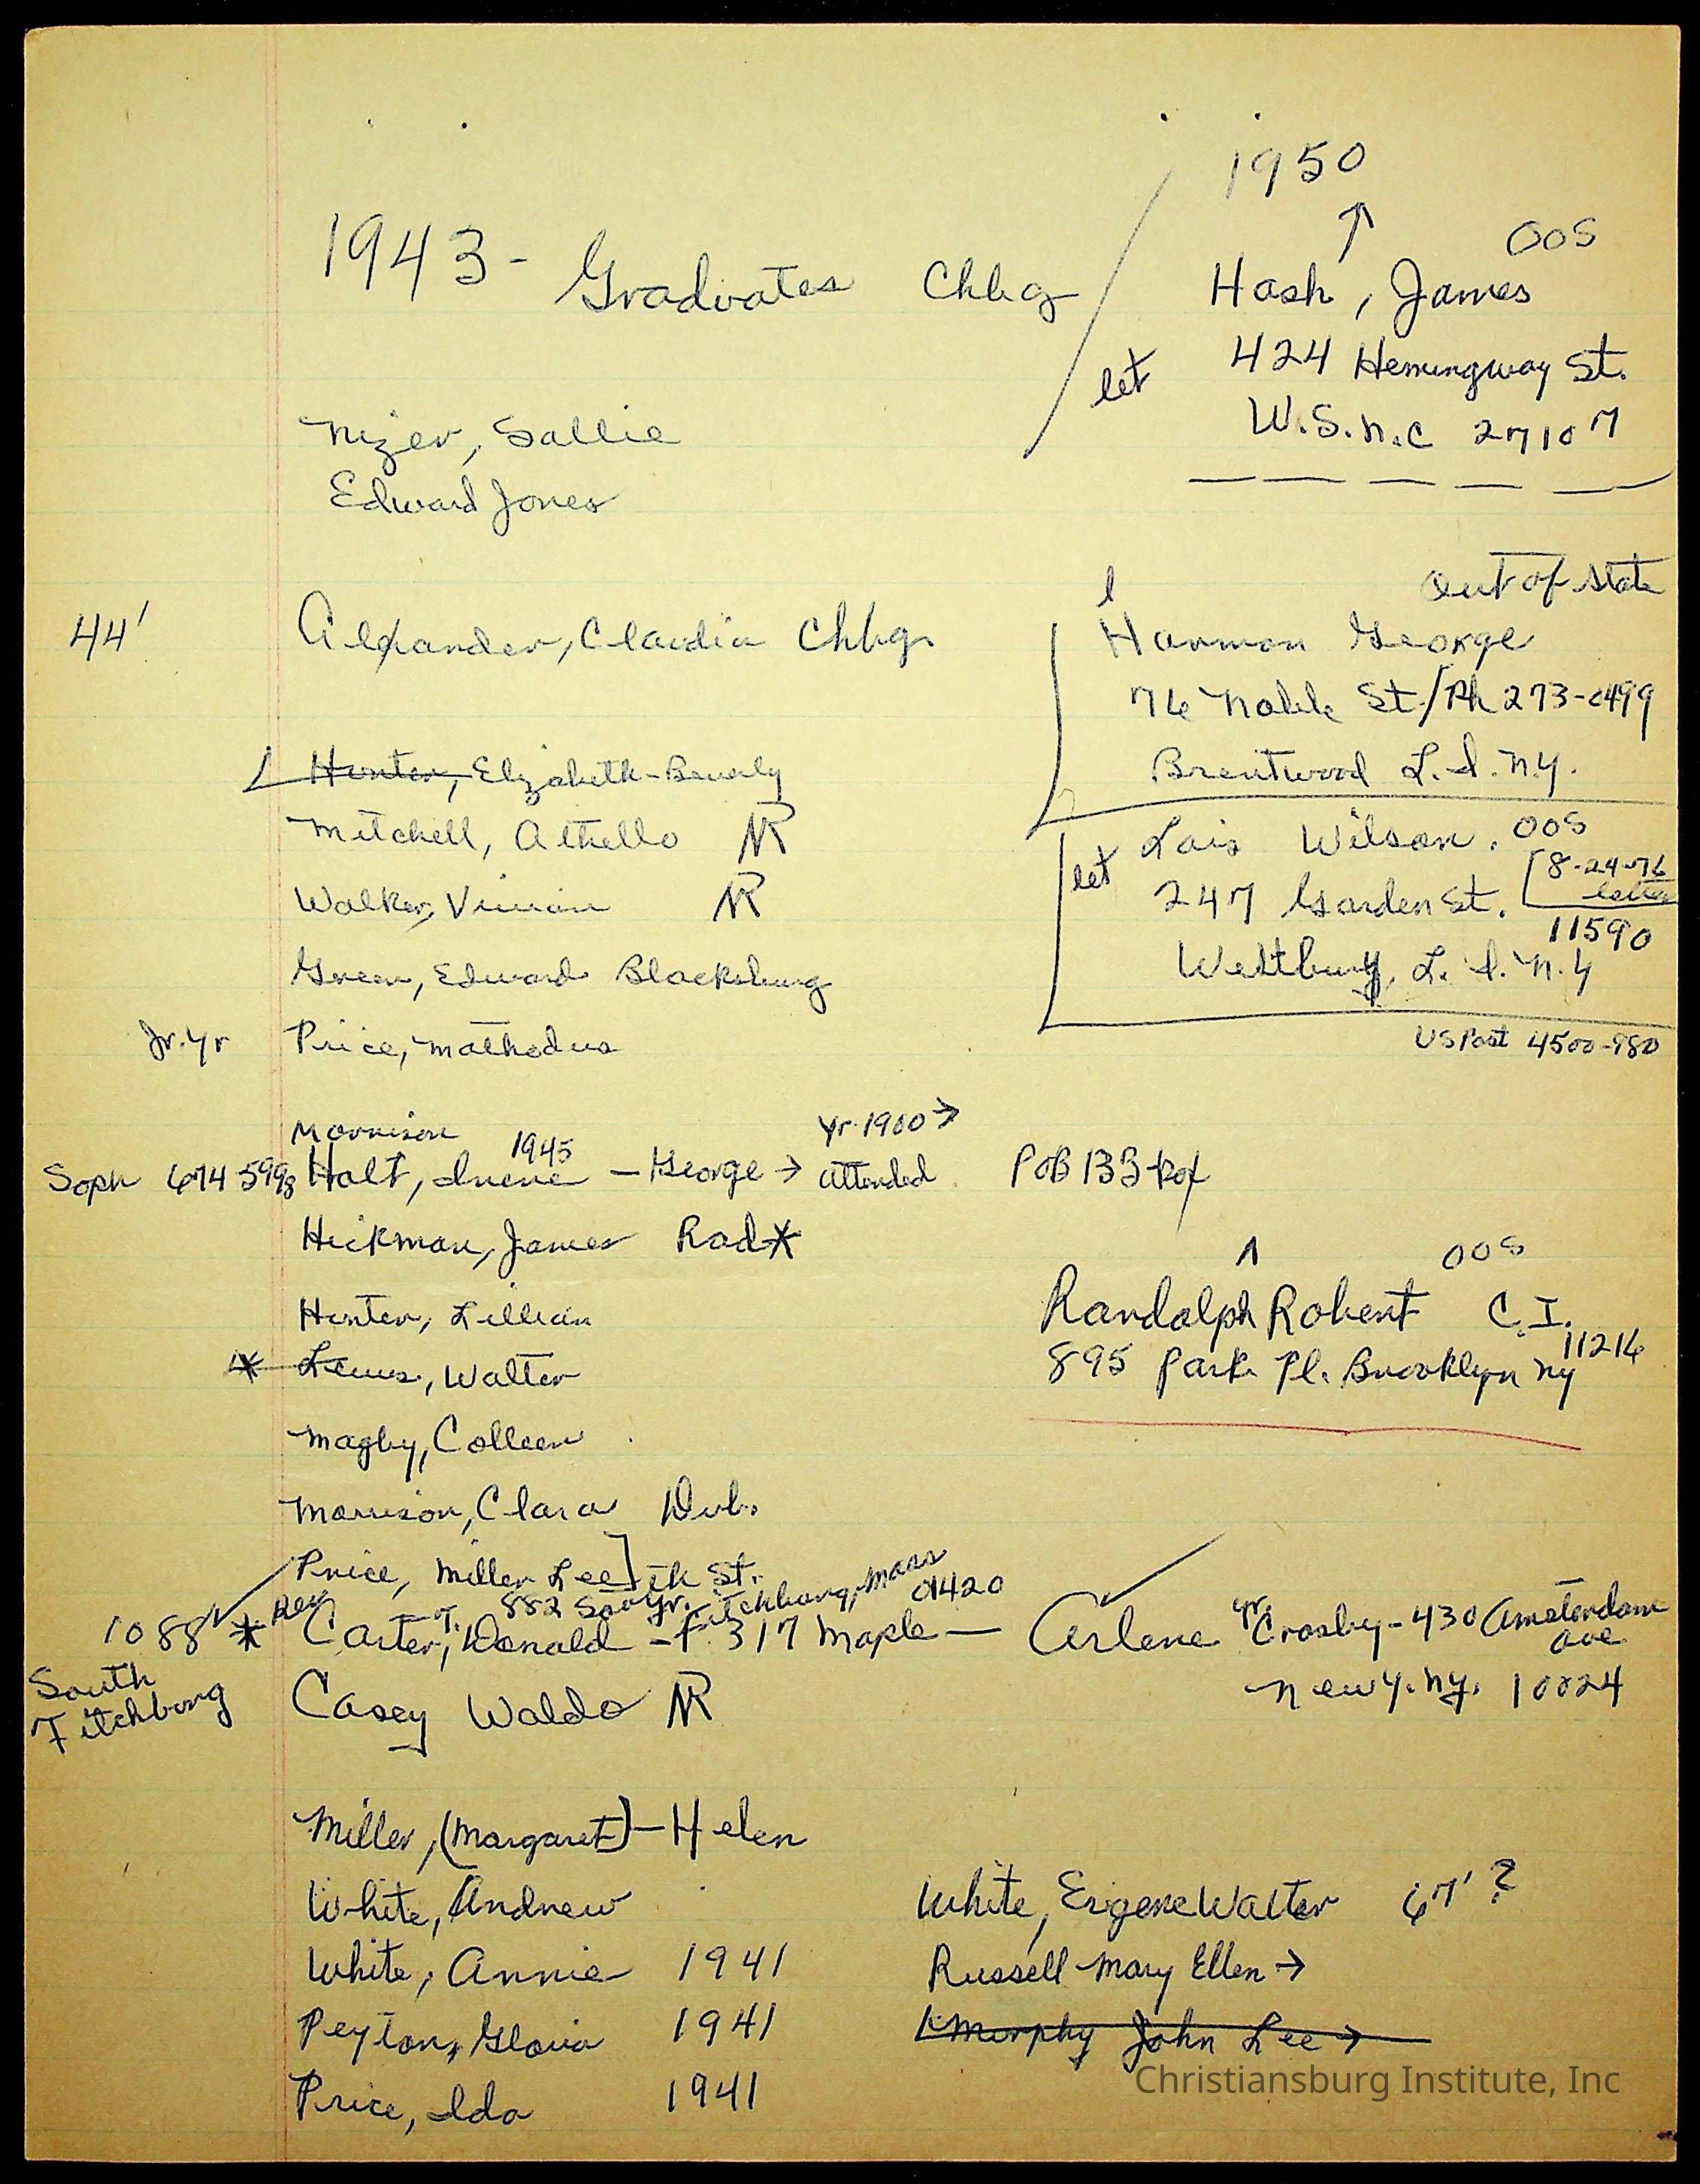 1950
↑
1943 - Graduates Chbg
Hash, James OOS
let 424 Hemingway St.
W.S. N.C 27107
Nizer, Sallie
Edward Jones
44' Alexander, Claudia Chbg.
l Out of State
Harmon George
76 Noble St./Ph 273-0499
Brentwood L.I. N.Y.
Hunter, Elizabeth-Beverly
Mitchell, Othello NR
Walker, Vivian NR
Green, Edward Blacksburg
Jr. Yr Price, Mathodus
Lois Wilson. OOS
let 247 Garden St. [8-24-76 letter
11590
Westbury, L.I. N.Y
US Post 4500-980
Morrison 1945 Yr. 1900 →
Soph 674 5998 Holt, Irene - George → attended POB 133-Rof
Hickman, James Rad*
Hunter, Lillian
* Lewis, Walter
Magby, Colleen
Morrison, Clara Dub.
^ OOS
Randolph Robert C.I.
895 Park Pl. Brooklyn NY 11216
Price, Miller Lee]
882 South St. Fitchburg, Mass 01420
1088 * Rev Carter, T. Donald - Jr. 317 Maple — Arlene Crosby - 430 Amsterdam ave
South Fitchburg
New Y. NY. 10024
Casey Waldo NR
Miller, (Margaret) - Helen
White, Andrew
White, Annie 1941
Peyton, Gloria 1941
Price, Ida 1941
White, Eugene Walter 67' ?
Russell Mary Ellen →
Murphy John Lee →
Christiansburg Institute, Inc